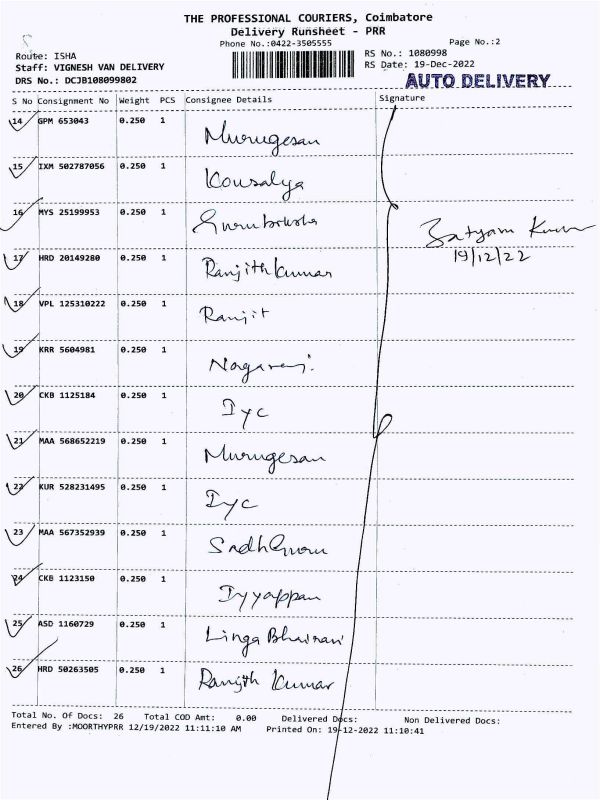 THE PROFESSIONAL COURIERS, Coimbatore
Delivery Runsheet - PRR
Phone No.:0422-3505555
Page No.:2
Route: ISHA
RS No.: 1080998
Staff: VIGNESH VAN DELIVERY
RS Date: 19-Dec-2022
DRS No.: DCJB108099802
AUTO DELIVERY
S No Consignment No Weight PCS Consignee Details Signature
14 GPM 653043 0.250 1 Murugesan
15 IXM 502787056 0.250 1 Kousalya
16 MYS 25199953 0.250 1
Satyam Kumar
19/12/22
17 HRD 20149280 0.250 1 Ranjith Kumar
18 VPL 125310222 0.250 1 Ranjit
19 KRR 5604981 0.250 1 Nagaraj.
20 CKB 1125184 0.250 1 Iyc
21 MAA 568652219 0.250 1 Murugesan
22 KUR 528231495 0.250 1 Iyc
23 MAA 567352939 0.250 1 SadhGuru
24 CKB 1123150 0.250 1 Iyyappan
25 ASD 1160729 0.250 1 Linga Bhairavi
26 HRD 50263505 0.250 1 Ranjith Kumar
Total No. Of Docs: 26 Total COD Amt: 0.00 Delivered Docs: Non Delivered Docs:
Entered By :MOORTHYPRR 12/19/2022 11:11:10 AM Printed On: 19-12-2022 11:10:41